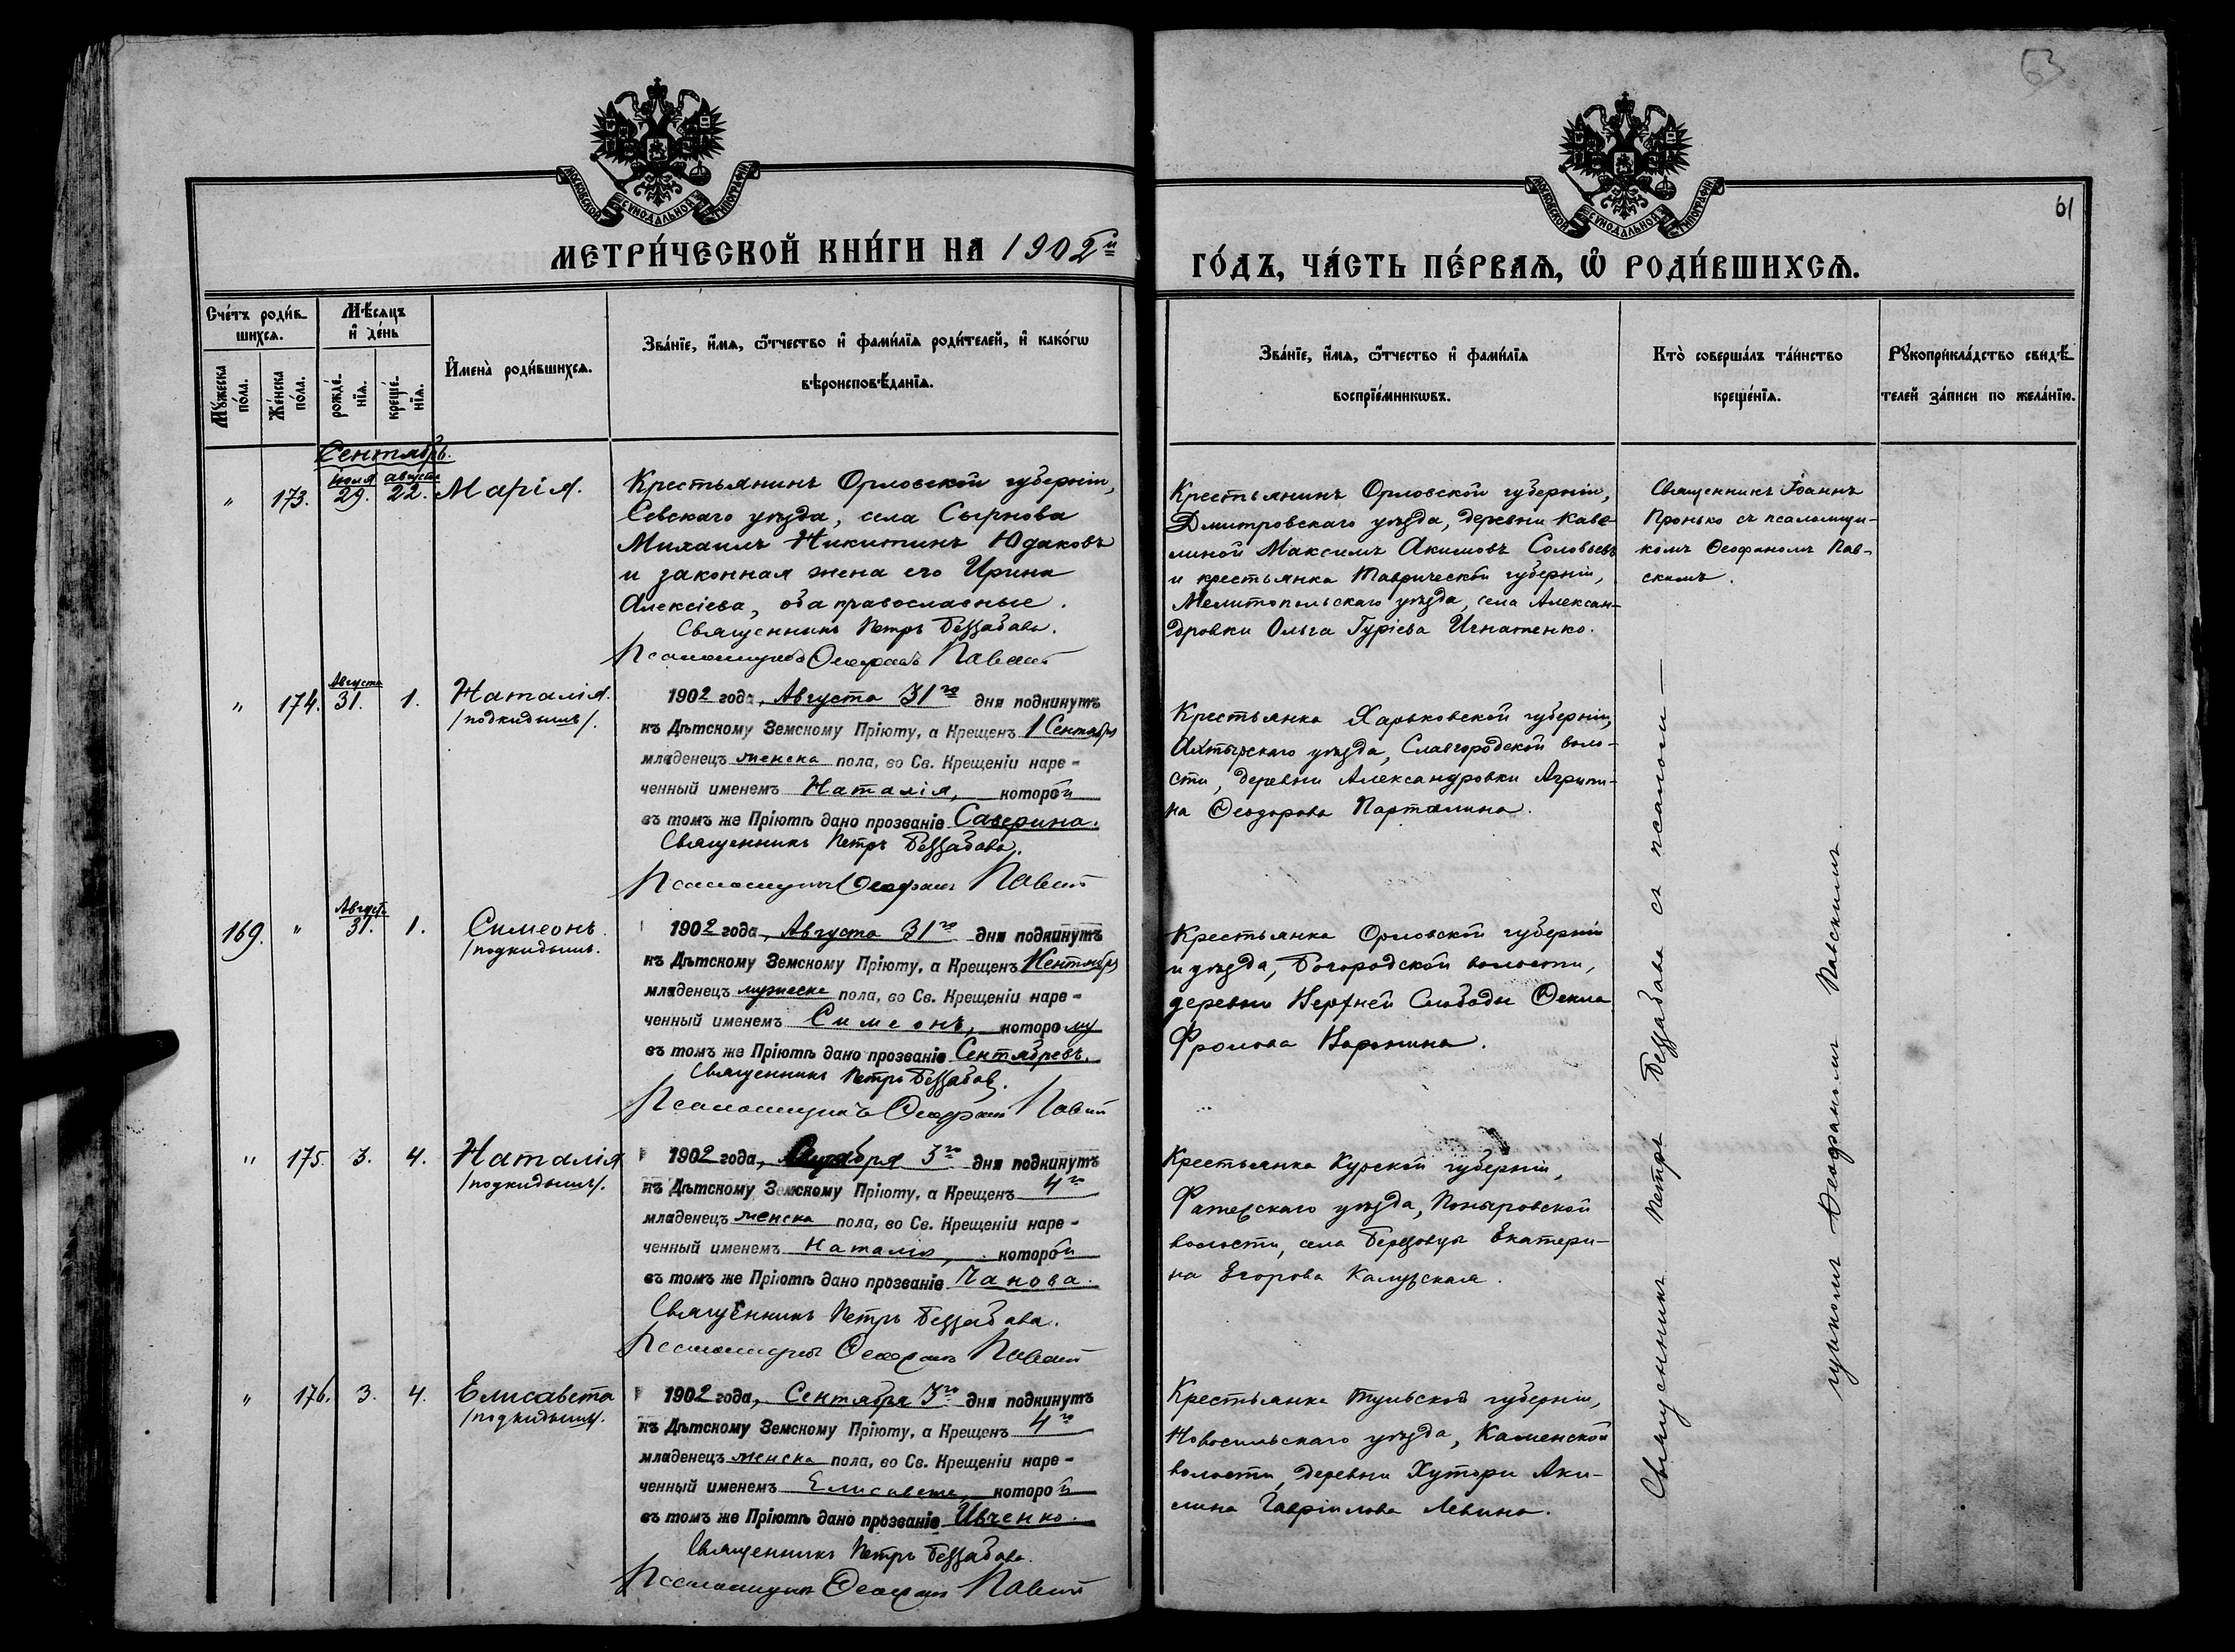 63
МОСКОВСКОЙ СѴНОДАЛЬНОЙ ТИПОГРАФІИ
МОСКОВСКОЙ СѴНОДАЛЬНОЙ ТИПОГРАФІИ
61
МЕТРИ́ЧЕСКОЙ КНИ́ГИ НА 1902й
ГО́ДЪ, ЧА́СТЬ ПЕ́РВАѦ, Ѡ҆ РОДИ́ВШИХСѦ.
Сче́тъ роди́в-
шихсѧ.
Мѣ́сѧцъ
и҆ де́нь
Мꙋ́жеска
по́ла.
Же́нска
по́ла.
рожде́-
нїѧ.
креще́-
нїѧ.
И҆мена̀ роди́вшихсѧ.
Зва́нїе, и҆́мѧ, ѻ҆́тчество и҆ фами́лїѧ роди́телей, и҆ како́гѡ
вѣроисповѣ́данїѧ.
Зва́нїе, и҆́мѧ, ѻ҆́тчество и҆ фами́лїѧ
воспрїе́мникѡвъ.
Кто̀ соверша́лъ та́инство
креще́нїѧ.
Рꙋкоприкла́дство свидѣ́-
телей за́писи по жела́нїю.
Сентябрь.
"
173.
іюля
29.
августа
22.
Марія.
Крестьянинъ Орловской губерніи,
Севскаго уѣзда, села Сырнова
Михаилъ Никитинъ Юдаковъ
и законная жена его Ирина
Алексіева, оба православные.
Священникъ Петръ Беззабава.
Псаломщикъ Ѳеофанъ Павскій
Крестьянинъ Орловской губерніи,
Дмитровскаго уѣзда, деревни Каве-
линой Максимъ Акимовъ Соловьевъ
и крестьянка Таврической губерніи,
Мелитопольскаго уѣзда, села Алексан-
дровки Ольга Гуріева Игнатенко.
Священникъ Іоаннъ
Пронько съ псаломщи-
комъ Ѳеофаномъ Пав-
скимъ.
"
174.
Августа
31.
1.
Наталія.
/подкидышъ/.
1902 года, Августа 31го дня подкинутъ
къ Дѣтскому Земскому Пріюту, а Крещенъ 1 Сентября
младенецъ женска пола, во Св. Крещеніи наре-
ченный именемъ Наталія, которой
въ томъ же Пріютѣ дано прозваніе Саверина.
Священникъ Петръ Беззабава.
Псаломщикъ Ѳеофанъ Павскій
Крестьянка Харьковской губерніи,
Ахтырскаго уѣзда, Славгородской воло-
сти, деревни Александровки Агрипи-
на Ѳеодорова Парталина.
169.
"
Августа
31.
1.
Симеонъ.
/подкидышъ.
1902 года, Августа 31го дня подкинутъ
къ Дѣтскому Земскому Пріюту, а Крещенъ 1 Сентября
младенецъ мужеска пола, во Св. Крещеніи наре-
ченный именемъ Симеонъ, которому
въ томъ же Пріютѣ дано прозваніе Сентябревъ.
Священникъ Петръ Беззабава.
Псаломщикъ Ѳеофанъ Павскій
Крестьянка Орловской губерніи
и уѣзда, Богородской волости,
деревни Верхней Слободы Ѳекла
Фролова Воронина.
"
175.
3.
4.
Наталія
/подкидышъ/.
1902 года, Сентября 3го дня подкинутъ
къ Дѣтскому Земскому Пріюту, а Крещенъ 4го
младенецъ женска пола, во Св. Крещеніи наре-
ченный именемъ Наталія, которой
въ томъ же Пріютѣ дано прозваніе Чанова.
Священникъ Петръ Беззабава.
Псаломщикъ Ѳеофанъ Павскій
Крестьянка Курской губерніи,
Фатежскаго уѣзда, Поныровской
волости, села Березовца Екатери-
на Егорова Калужская.
"
176.
3.
4.
Елисавета
/подкидышъ/.
1902 года, Сентября 3го дня подкинутъ
къ Дѣтскому Земскому Пріюту, а Крещенъ 4го
младенецъ женска пола, во Св. Крещеніи наре-
ченный именемъ Елисавета, которой
въ томъ же Пріютѣ дано прозваніе Ивченко.
Священникъ Петръ Беззабава.
Псаломщикъ Ѳеофанъ Павскій
Крестьянка Тульской губерніи,
Новосильскаго уѣзда, Каменской
волости, деревни Хутори Аки-
лина Гавріилова Левина.
Священникъ Петръ Беззабава съ псалом-
щикомъ Ѳеофаномъ Павскимъ